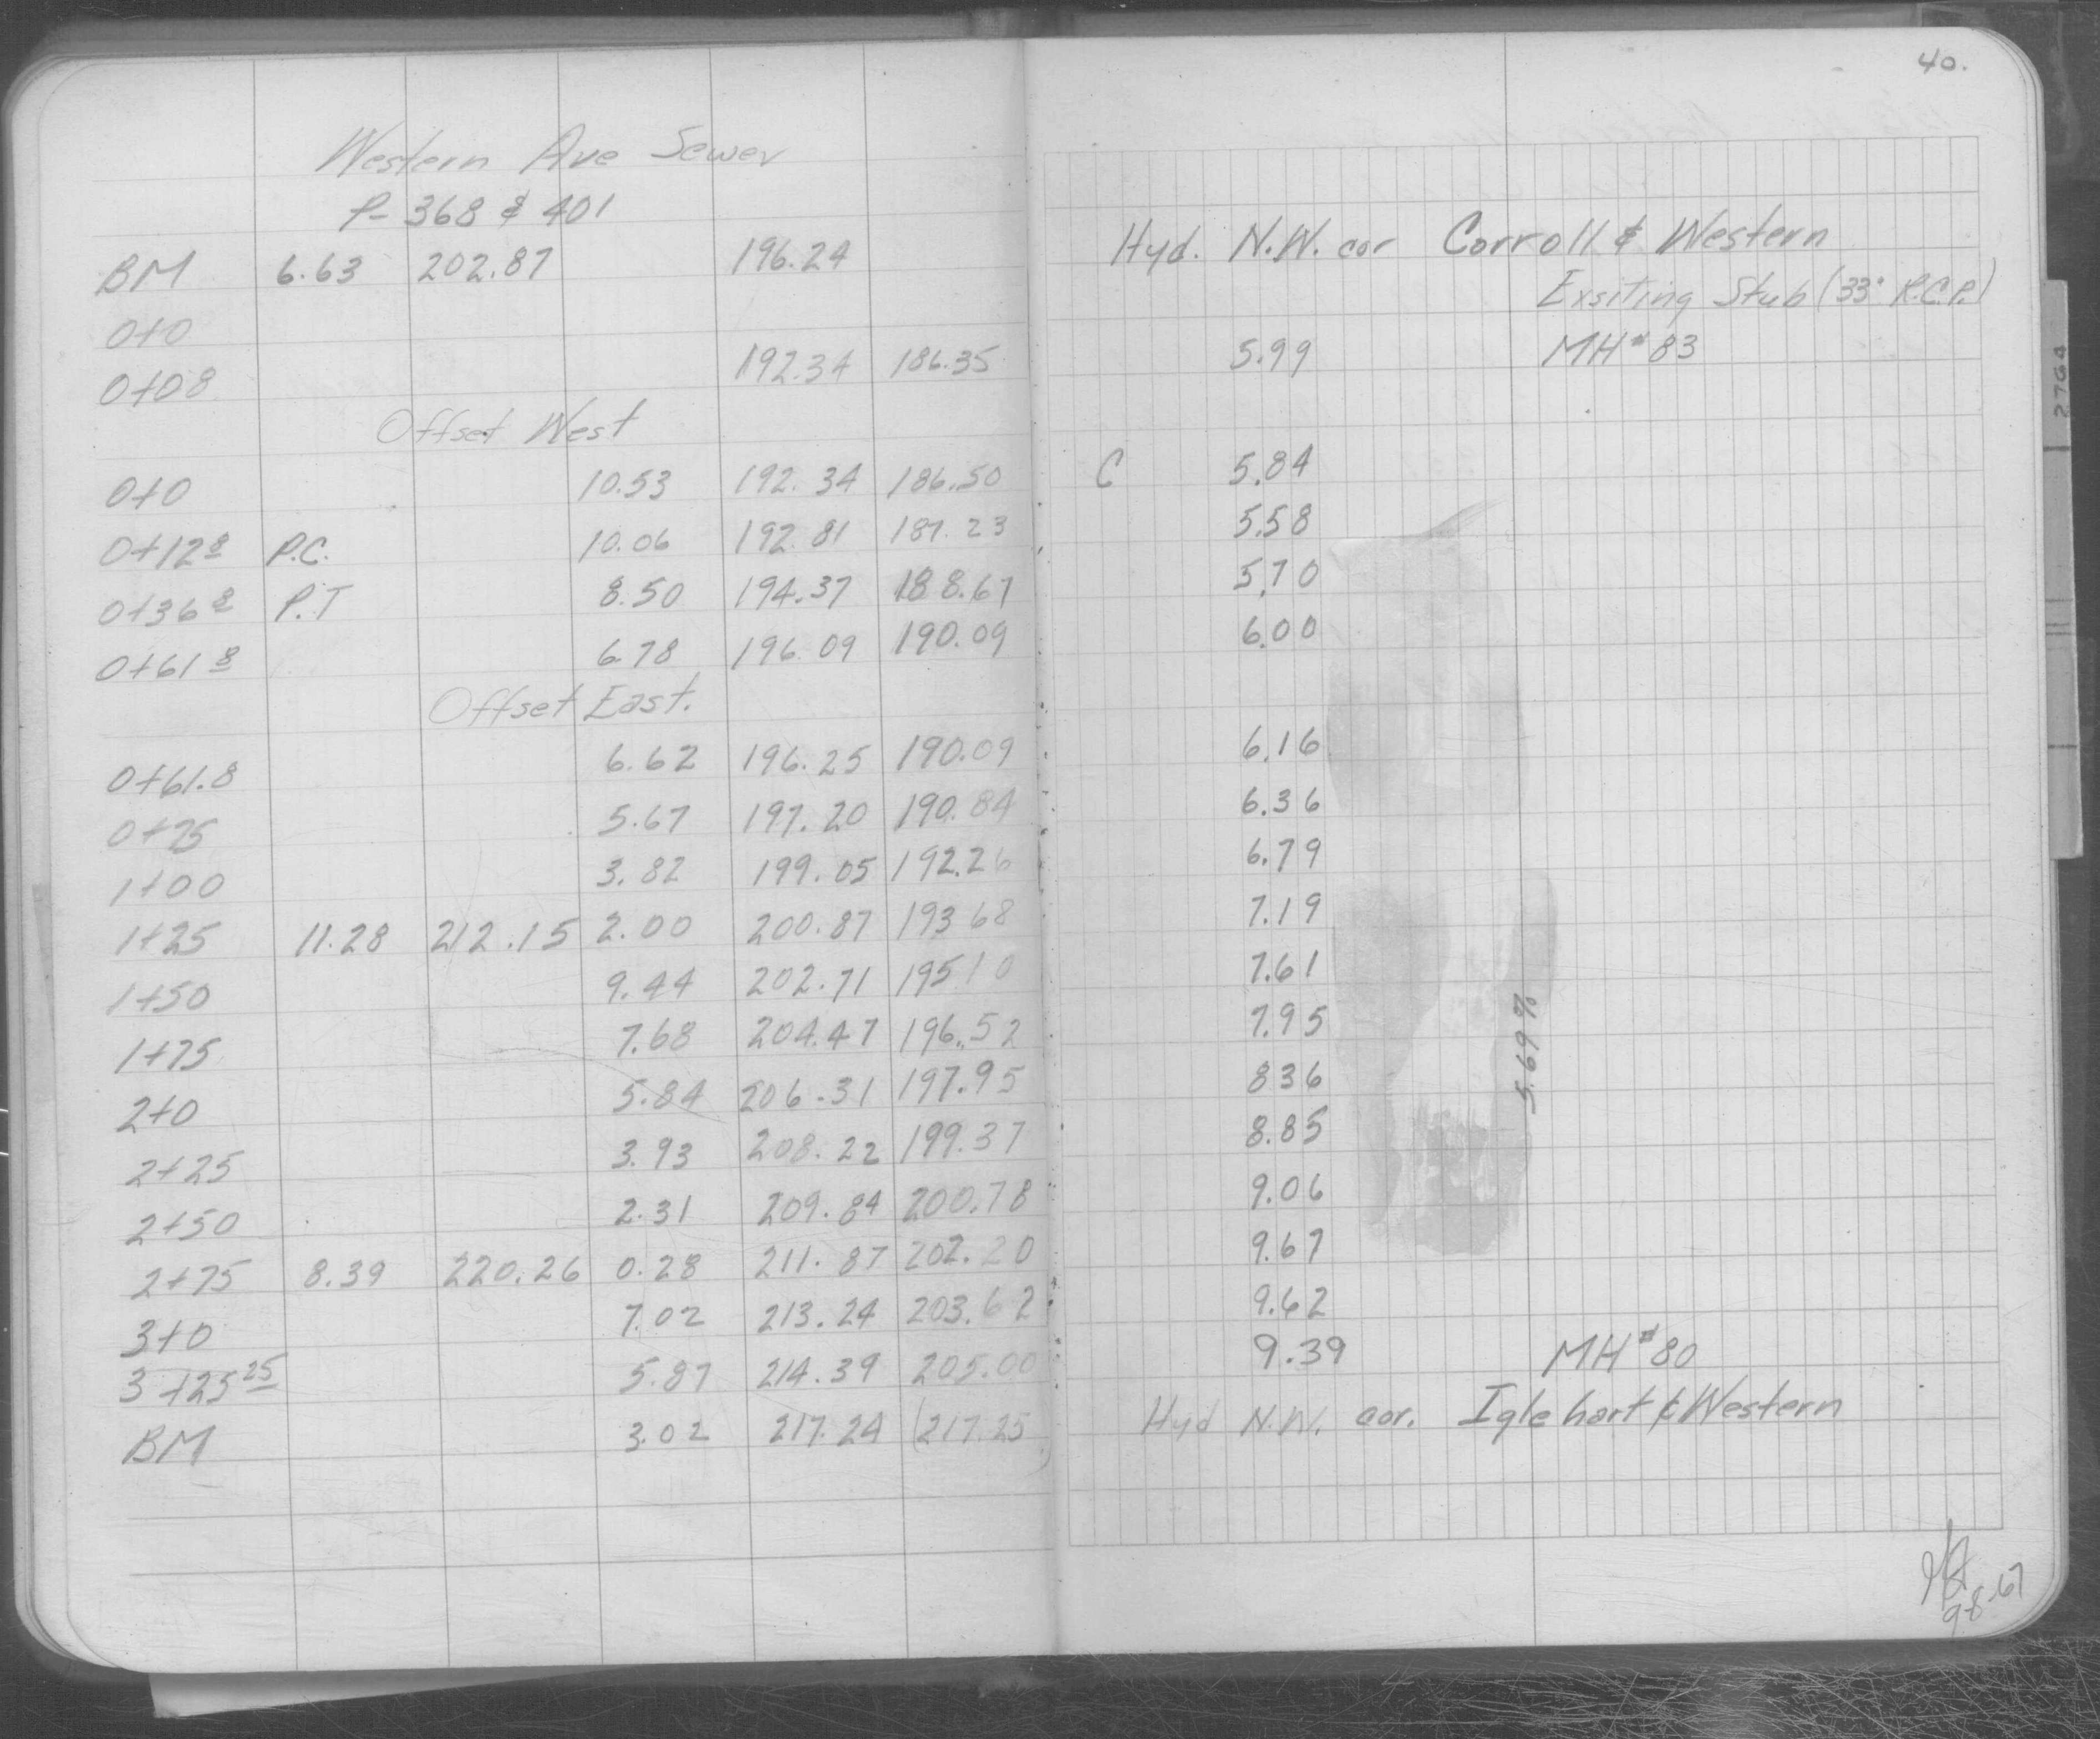 40.
Western Ave Sewer
P- 368 & 401
BM 6.63 202.87 196.24 Hyd. N.W. cor Corroll & Western
0+0 Exsiting Stub (33" R.C.P.)
0+08 192.34 186.35 5.99 MH#83
Offset West
0+0 10.53 192.34 186.50 C 5.84
0+12 8 P.C. 10.06 192.81 187.23 5.58
0+36 8 P.T 8.50 194.37 188.67 5.70
0+61 8 6.78 196.09 190.09 6.00
Offset East.
0+61.8 6.62 196.25 190.09 6.16
0+75 5.67 197.20 190.84 6.36
1+00 3.82 199.05 192.26 6.79
1+25 11.28 212.15 2.00 200.87 193 68 7.19
1+50 9.44 202.71 195 10 7.61
1+75 7.68 204.47 196.52 7.95
5.69%
2+0 5.84 206.31 197.95 8 36
2+25 3.93 208.22 199.37 8.85
2+50 2.31 209.84 200.78 9.06
2+75 8.39 220.26 0.28 211.87 202.20 9.67
3+0 7.02 213.24 203.62 9.62
3+25 25 5.87 214.39 205.00 9.39 MH#80
BM 3.02 217.24 (217.25) Hyd N.W. cor. Iglehart & Western
9-8-67
2764